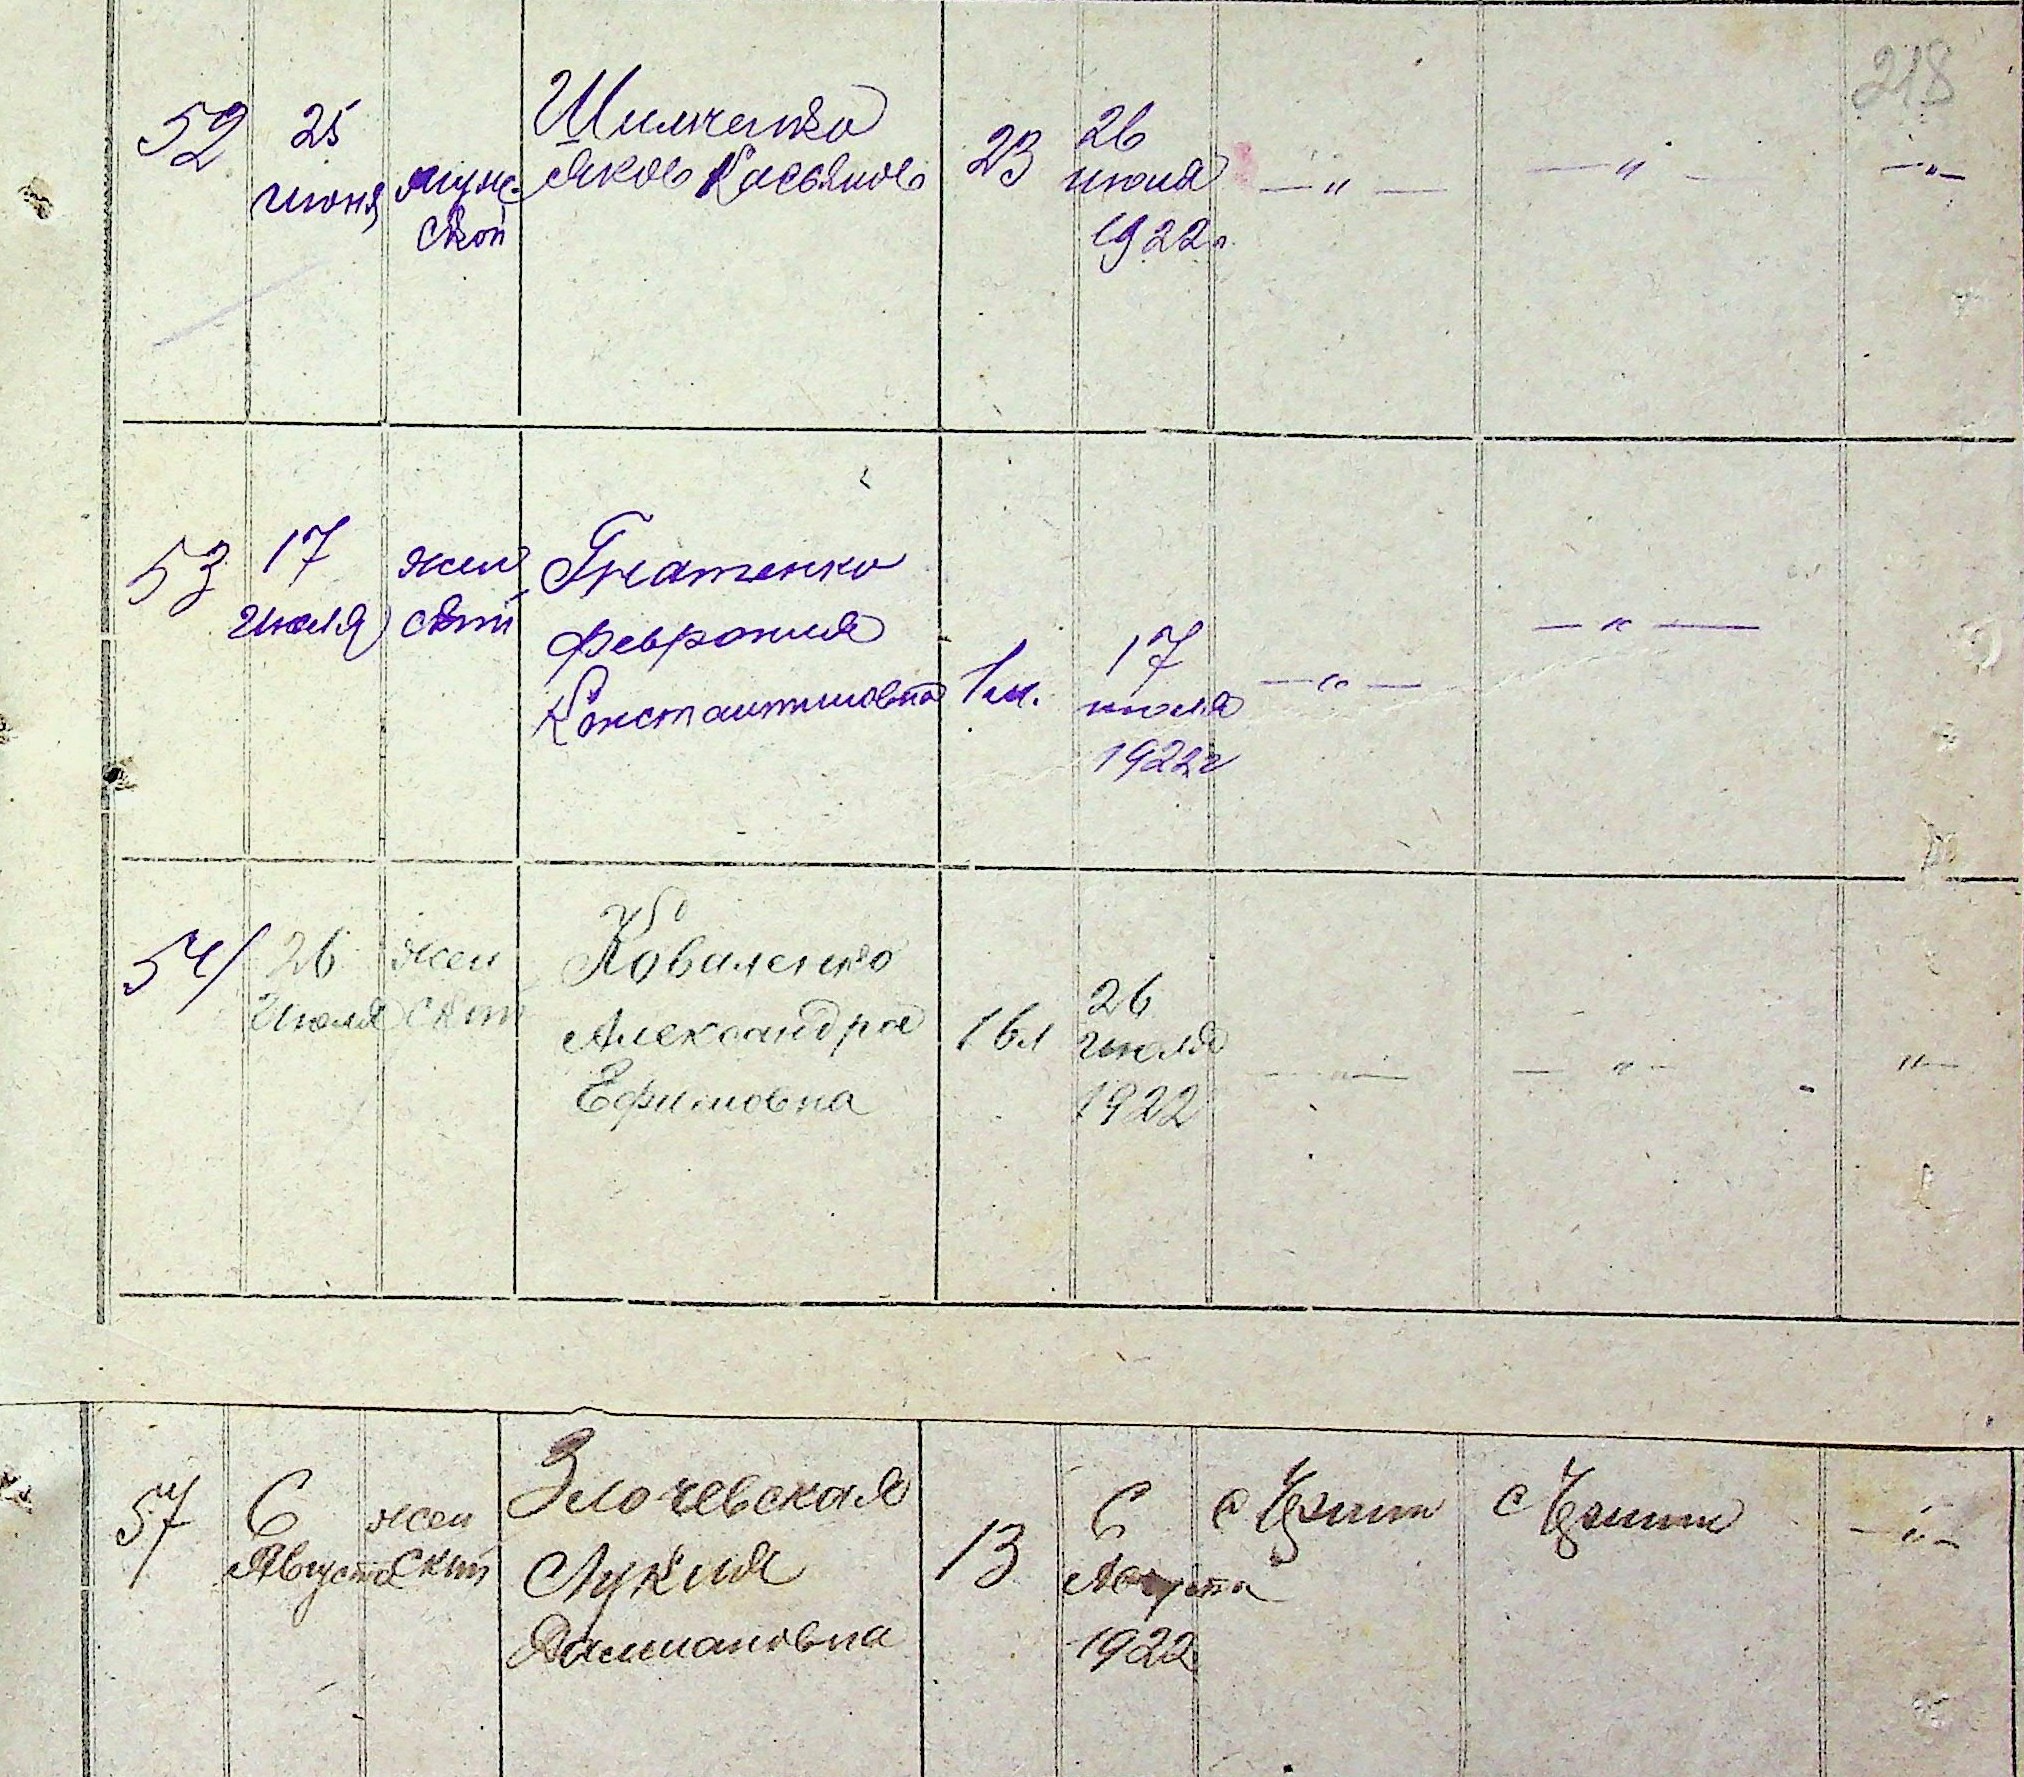 218
52
25
июня
мужс
ской
Шимченко
Яков Касьянов
23
26
июня
1922г.
— " —
— " —
— " —
53
17
июля
жен
ский
Гнатенко
Феврония
Константиновна
1 м.
17
июля
1922г
— " —
— " —
54
26
июля
жен
ский
Коваленко
Александра
Ефимовна
1 6л
26
июля
1922
— " —
— " —
" —
57
6
Августа
жен
ский
Злочевская
Лукия
Дамиановна
13
6
Августа
1922
с
с
— " —